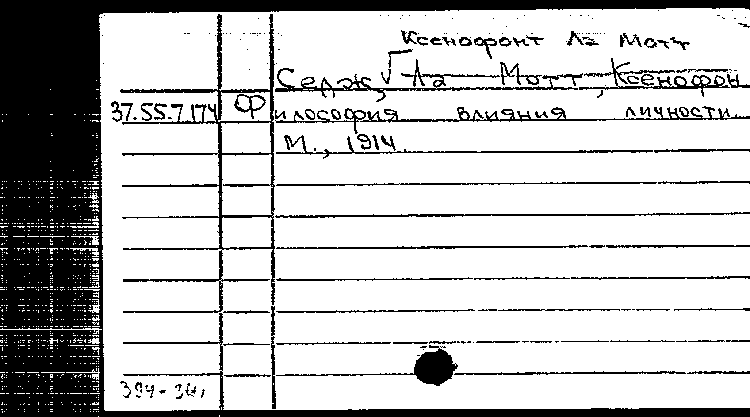 Ксенофонт Ла Мотт
Седж, √ Ла Мотт, Ксенофон
37.55.7.174 Философия влияния личности
М., 1914